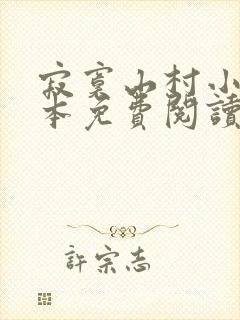 寂寞山村小
本免費閱讀
許宗志